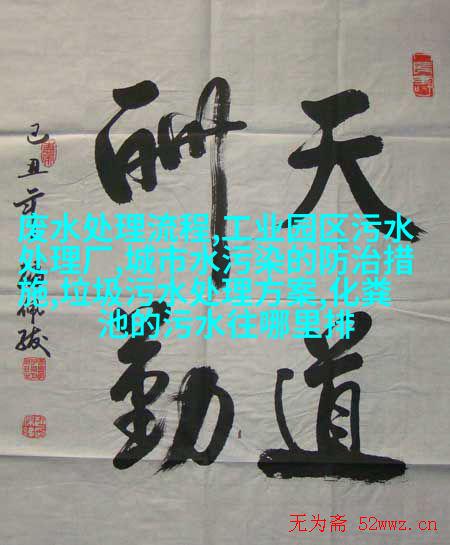 天道
酬勤
己丑
废水处理流程,工业园区污水
处理厂,城市水污染的防治措
施,垃圾污水处理方案,化粪
池的污水往哪里排
无为斋 52wwz.cn